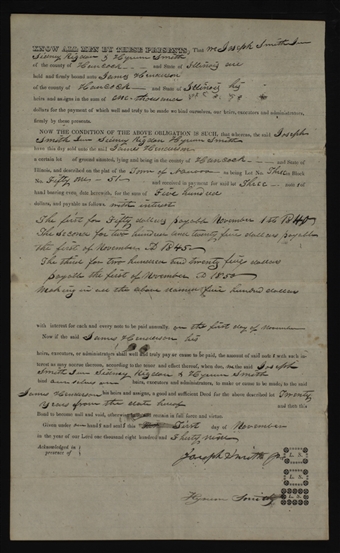 KNOW ALL MEN BY THESE PRESENTS, That we Joseph Smith Jun
Sidney Rigdon & Hyrum Smith
of the county of Hancock and State of Illinois are
held and firmly bound unto James Henderson
of the county of Hancock and State of Illinois his
heirs and assigns in the sum of one thousand
dollars for the payment of which well and truly to be made we bind ourselves, our heirs, executors and administrators,
firmly by these presents.
NOW THE CONDITION OF THE ABOVE OBLIGATION IS SUCH, that whereas, the said Joseph
Smith Jun Sidney Rigdon Hyrum Smith
have this day sold unto the said James Henderson
a certain lot of ground situated, lying and being in the county of Hancock State of
Illinois, and described on the plat of the Town of Nauvoo as being Lot No. Three Block
No. Fifty one and received in payment for said lot Three
hand bearing even date herewith, for the sum of Five hundred
dollars, and payable as follows with interest
The first for Fifty dollars payable November 1st 1840
The second for two hundred and twenty five dollars payable
the first of November AD 1845
The third for two hundred and twenty five dollars
payable the first of November AD 1850
Making in all the above named five hundred dollars
with interest for each and every note to be paid annually on the first day of November
Now if the said James Henderson his
heirs, executors, or administrators shall well and truly pay or cause to be paid, the amount of said notes with each interest
as may accrue thereon, according to the tenor and effect thereof, when due, the said Joseph
Smith Jun Sidney Rigdon & Hyrum Smith
bind ourselves our heirs, executors and administrators, to make or cause to be made, to the said
James Henderson his heirs and assigns, a good and sufficient Deed for the above described lot Twenty
years from the date hereof and then this
Bond to become null and void, otherwise to remain in full form and virtue.
Given under our hands and seals this First day of November
in the year of our Lord one thousand eight hundred and Thirty Nine
Acknowledged in
presence of
Joseph Smith Jr L. S.
L. S.
Hyrum Smith L. S.